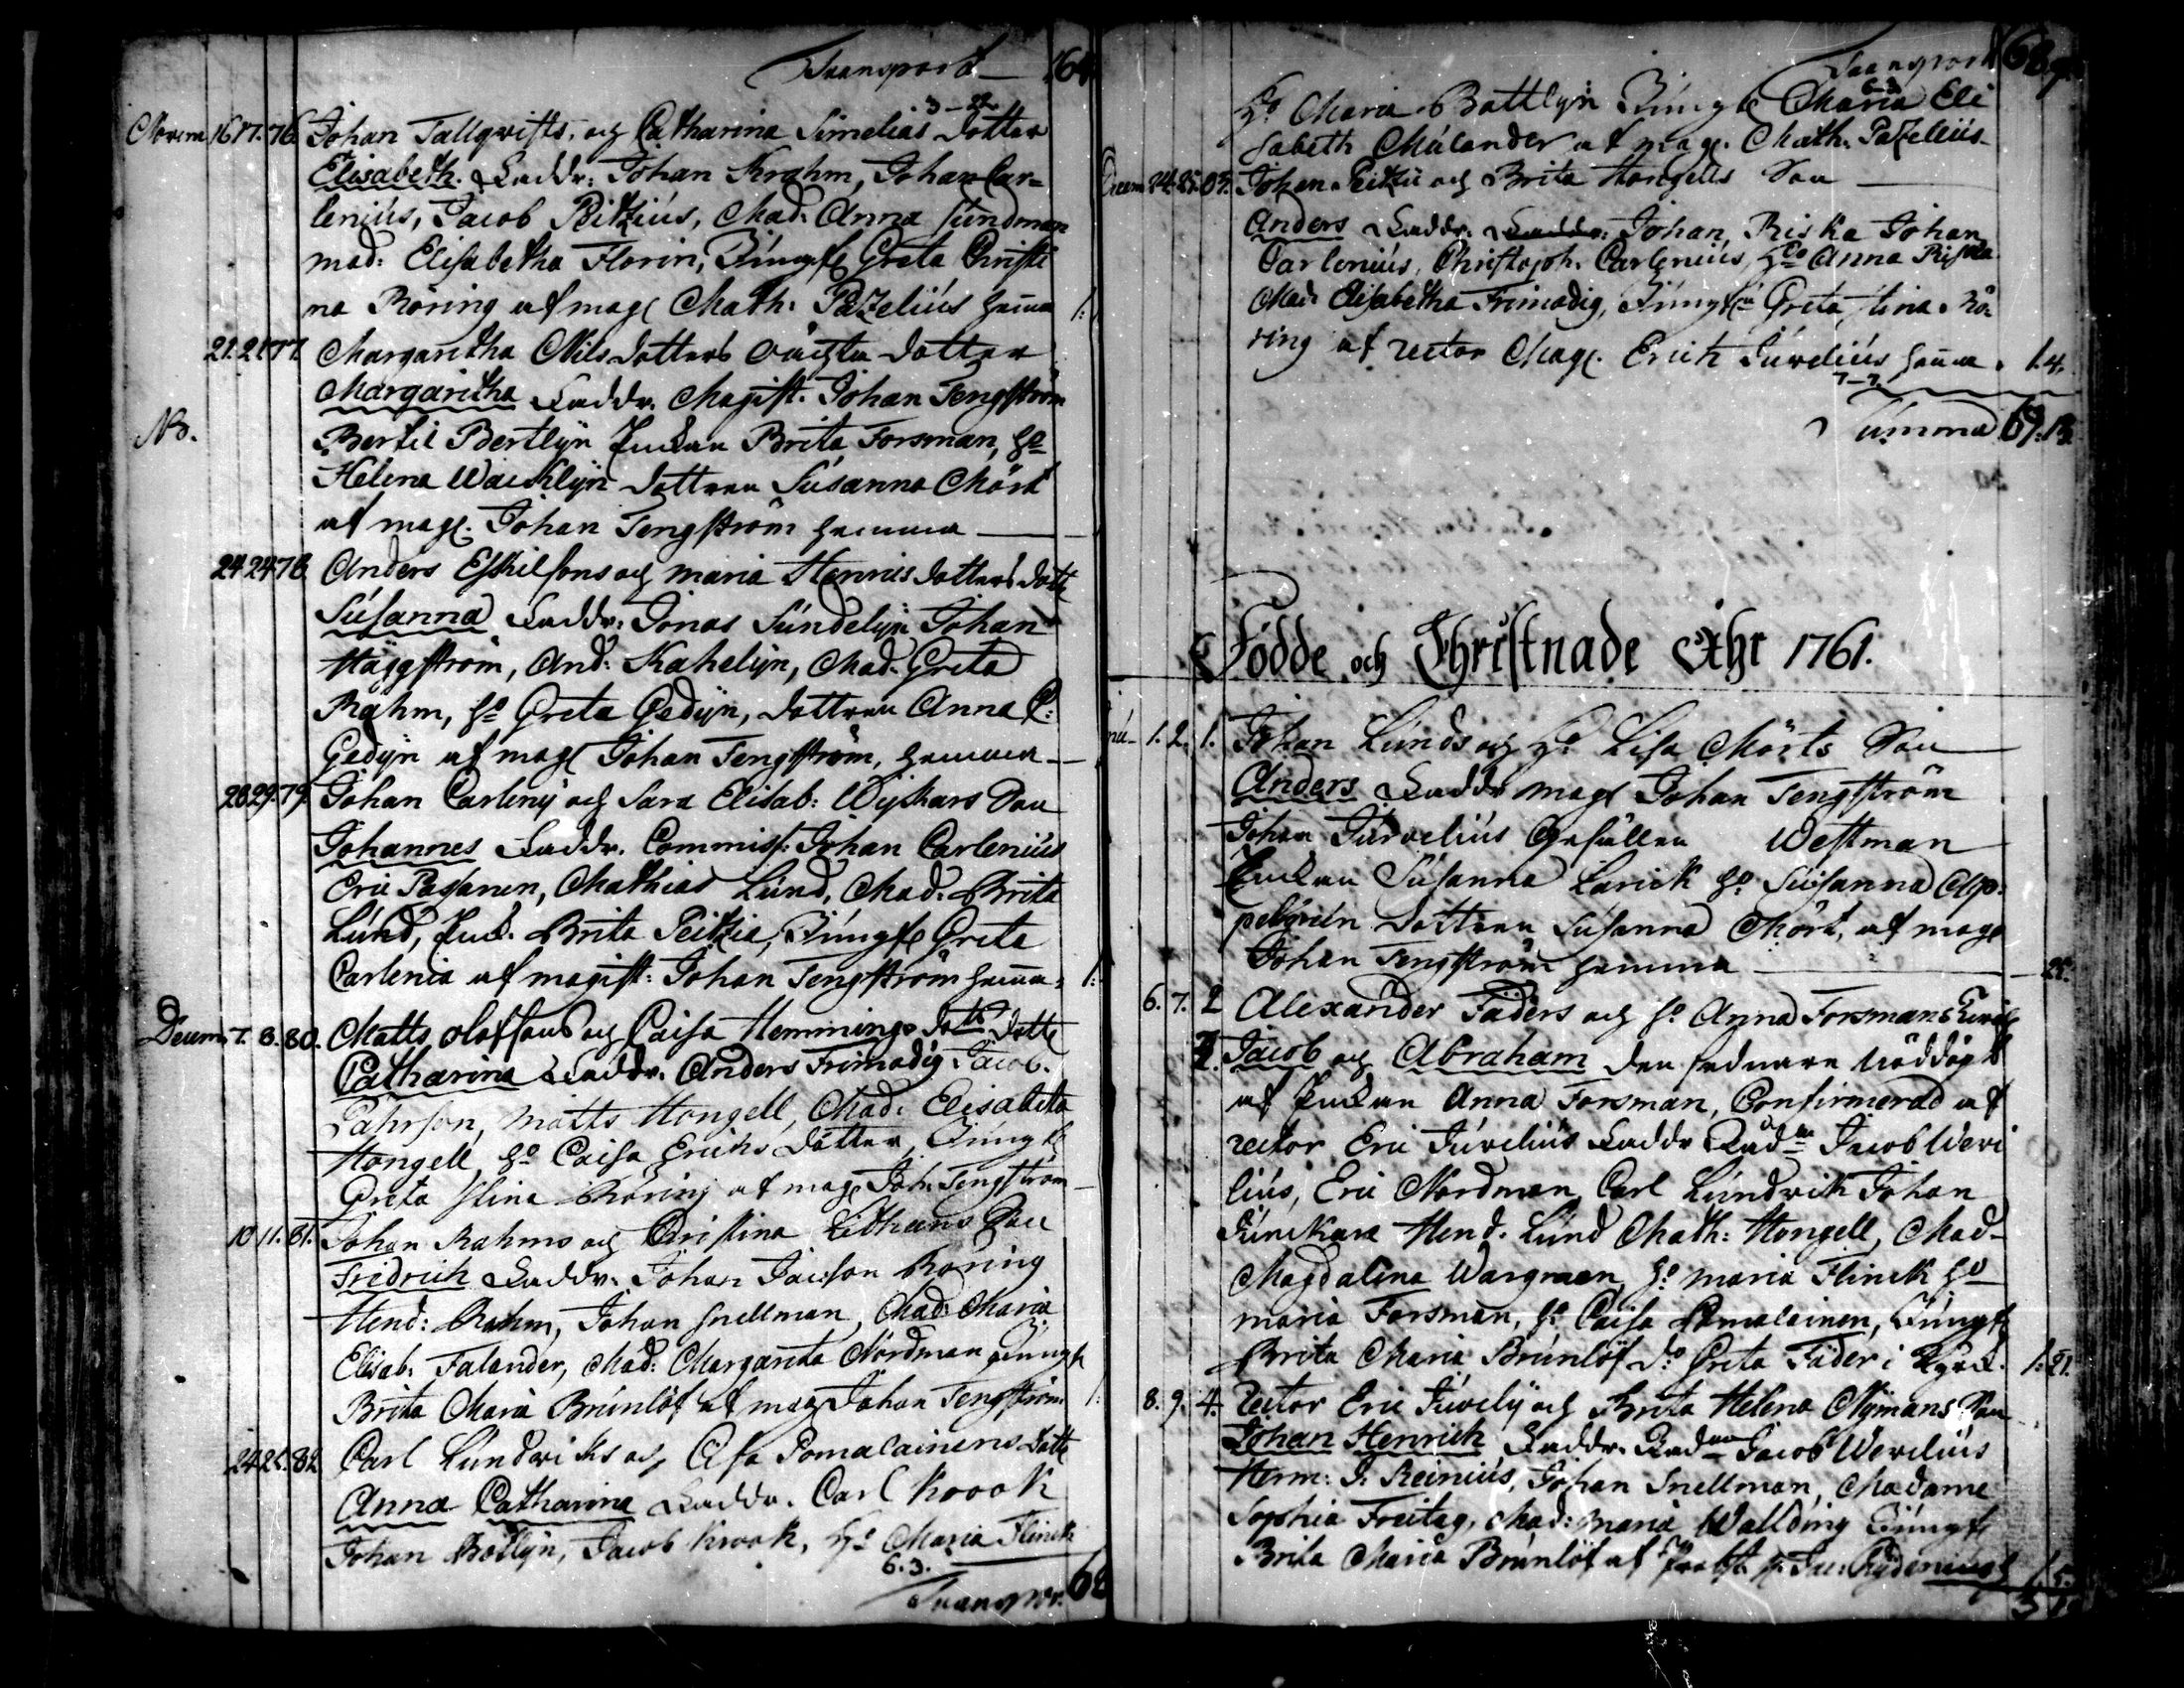 Transport 64
3-22
Novem 16 17. 76. Johan Tallqvists, och Catharina Simelias dotter
Elisabeth. Faddr: Johan Krahm, Johan Car=
lenius, Jacob Peitzius, Mad: Anna Sundman
mad: Elisabetha Florin, Jungfr Greta Christi
na Röring af mag Math: Pazelius hema
21. 21. 77. Margaretha Nils dotters oächta dotter
Margaretha Faddr. Magist. Johan Tengström
NB. Bertil Bertlijn Enkan Brita Forsman, ho
Helena Wacklijn dottren Susanna Mört
af mag. Johan Tengström hemma
24 24 78. Anders Eskilsons och Maria Henrics dotters dotter
Susanna Faddr: Jonas Sundelijn Johan
Häggström, And: Kahelijn, Mad. Greta
Råhm, ho Greta Gedijn, dottren Anna C:
Gedijn af mag Johan Tengström, hemma
28 29. 79. Johan Carleny och Sara Elisab: Wijkars Son
Johannes Faddr. Commiss: Johan Carlenius
Eric Passanen, Mathias Lund, Mad. Brita
Lund, Enk. Brita Peitzia, Jungfr Greta
Carlenia af magist: Johan Tengström hema
Decem 7. 8. 80. Matts Olofsons och Caisa Hemmings dotts dotter
Catharina Faddr. Anders Frimodig Jacob
Pährson, Matts Hongell, Mad: Elisabeta
Hongell, ho Caisa Erichs dotter, Jungfr
Greta Stina Röring af mag Joh: Tengström
10 11. 81. Johan Rahms och Christina Eithans Son
Fridrich Faddr. Johan Jacson Röring
Hend: Rahm, Johan Snellman, Mad. Maria
Elisab: Falander, Mad: Margareta Nordman Jungfr
Brita Maria Brunlöf af mag Johan Tengström
24 25. 82 Carl Lundwicks och Cisa Pomalainens dotter
Anna Catharina Faddr. Carl Krook
Johan Botlijn, Jacob Krook, ho Maria Flinck
6.3.
Transpor. 68
Transport 68
Ho Maria Battlijn Jungfr Maria Eli
sabeth Mulander af mag. Math: Pazelius
Decem 24. 25. 83. Johan Peitzii och Brita Hongells Son
Anders Faddr. Johan Riska Johan
Carlenius, Christoph. Carlenius, Ho Anna Riska
Mad: Elisabetha Frimodig, Jungfr Greta Stina Rö=
ring af rector Mag. Erich Juvelius hema 1.4.
7-7.
Summa 69.13.
Födde och Christnade Åhr 1761.
1. 2. 1. Johan Lunds och ho Lisa Mörts Son
Anders Faddr mag Johan Tengström
Johan Jurvelius Gesällen Westman
Enkan Susanna Larick ho Susanna Ap=
pelgrén dottren Susanna Mört, af mag
Johan Tengström hemma 25.
6. 7. 2 Alexander Fäders och ho Anna Forsmans
3. Jacob och Abraham den sednare nöddöpt
af Enkan Anna Forsman, Confirmerad af
rector Eric Juvelius Faddr Rådm Jacob Weri
lius, Eric Nordman Carl Lundwik Johan
Junckara Hend. Lund Math: Hongell, Mad
Magdalena Wargman, ho Maria Flinck ho
Maria Forsman, ho Caisa Pomalainen, Jungfr
Brita Maria Brunlöf do Greta Fäder i Kyrck. 1:21.
8. 9. 4. Rector Eric Juvely och Brita Helena Nymans Son
Johan Henrich Faddr. Rådm Jacob Werelius
Herm: J. Reinius, Johan Snellman, Madame
Sophia Freitag, Mad: Maria Wallding Jungfr
Brita Maria Brunlöf af Probst h. Jac: Chydenius 1.5.